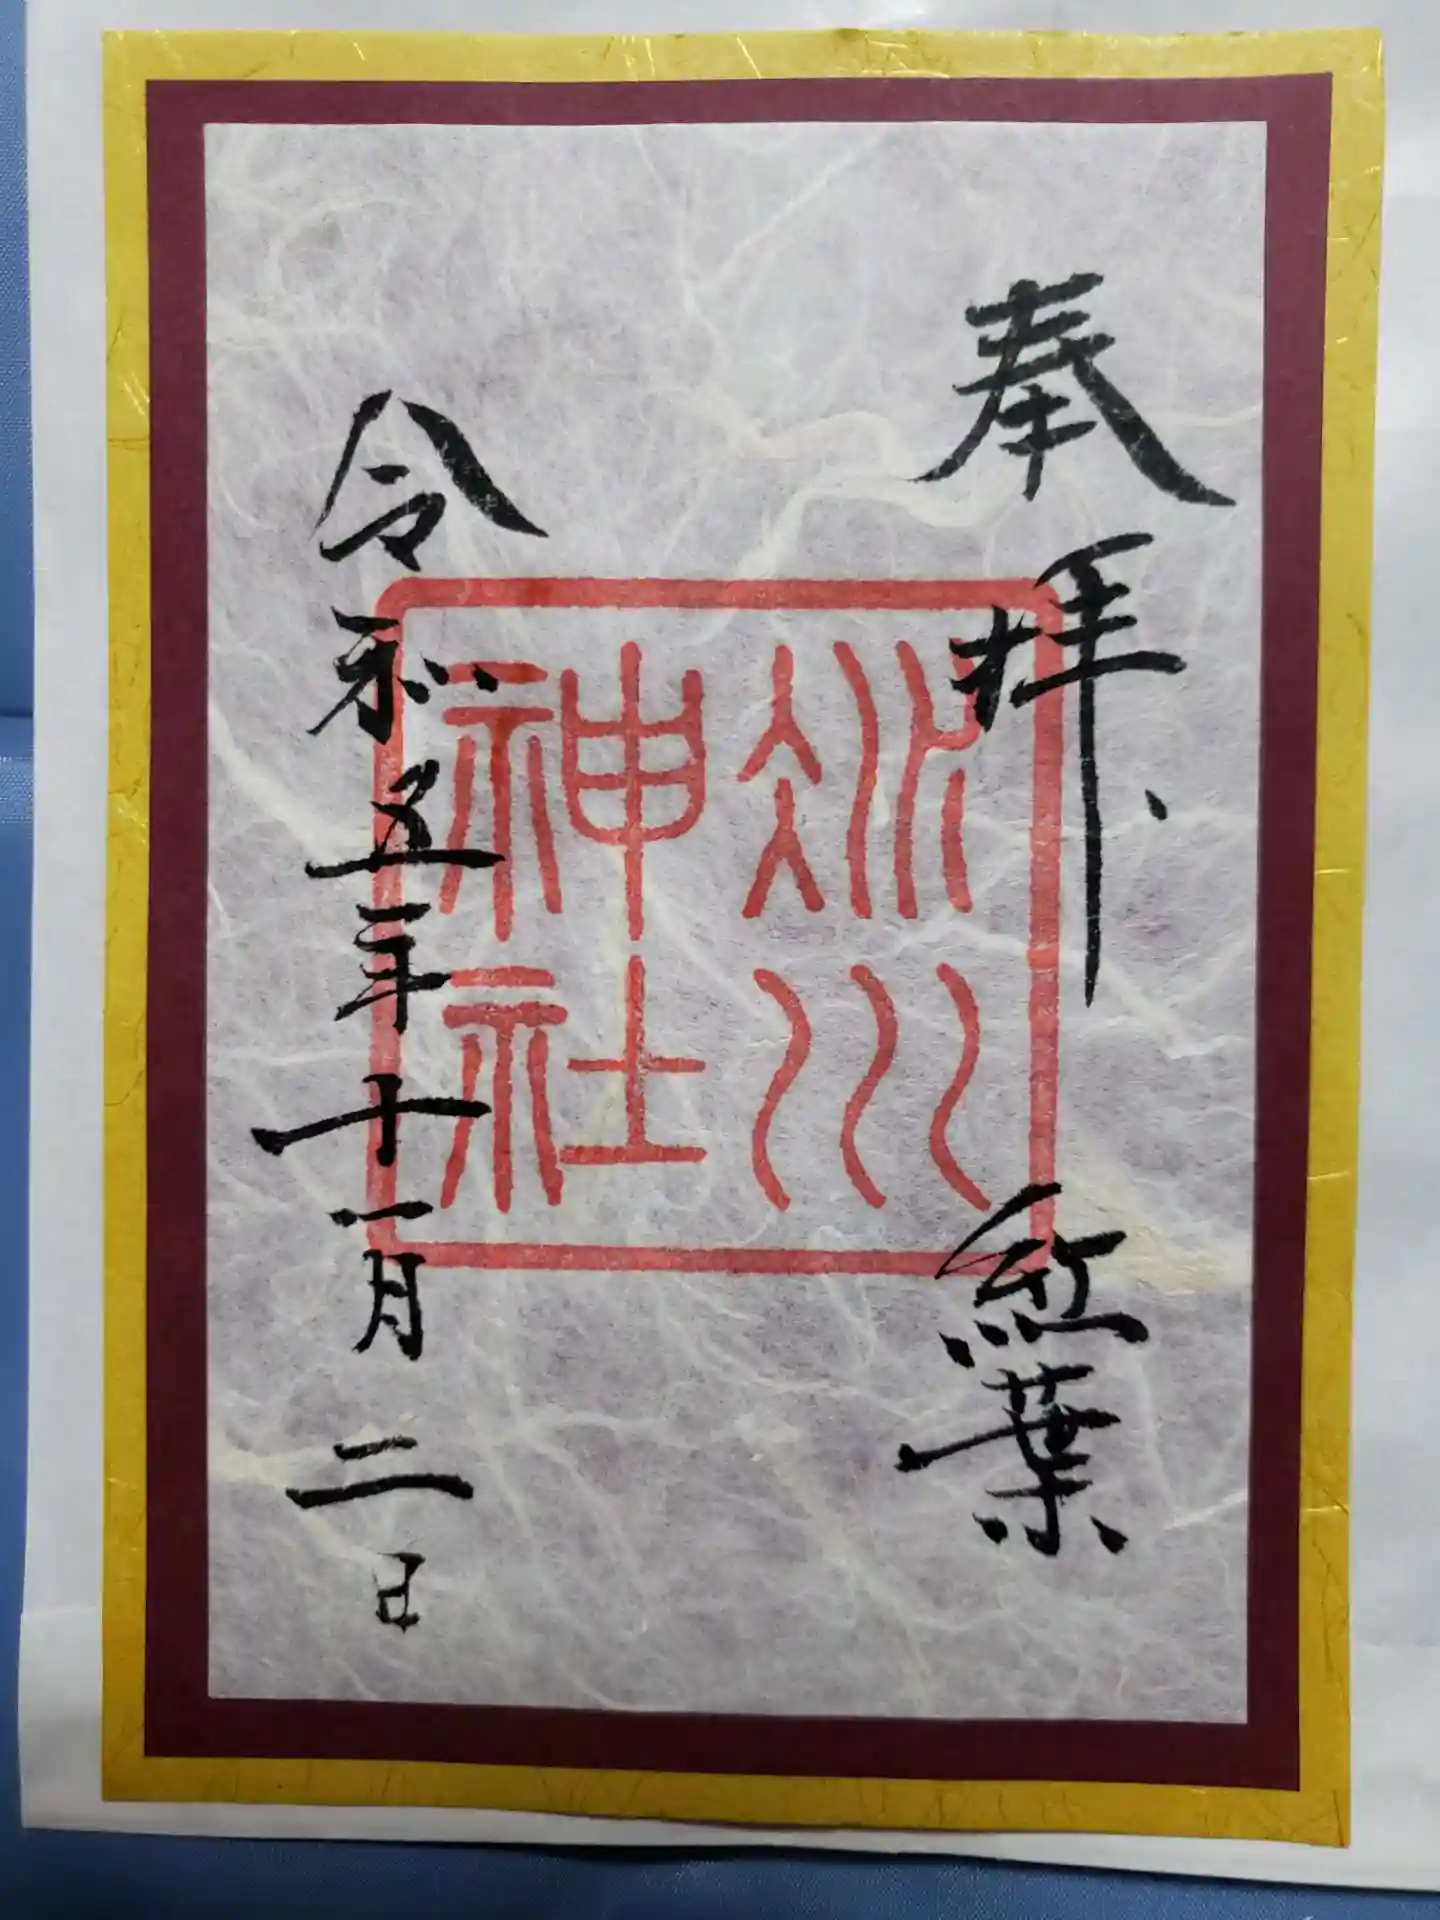 奉拝、紅葉
冰川
神社
令和五年十一月二日